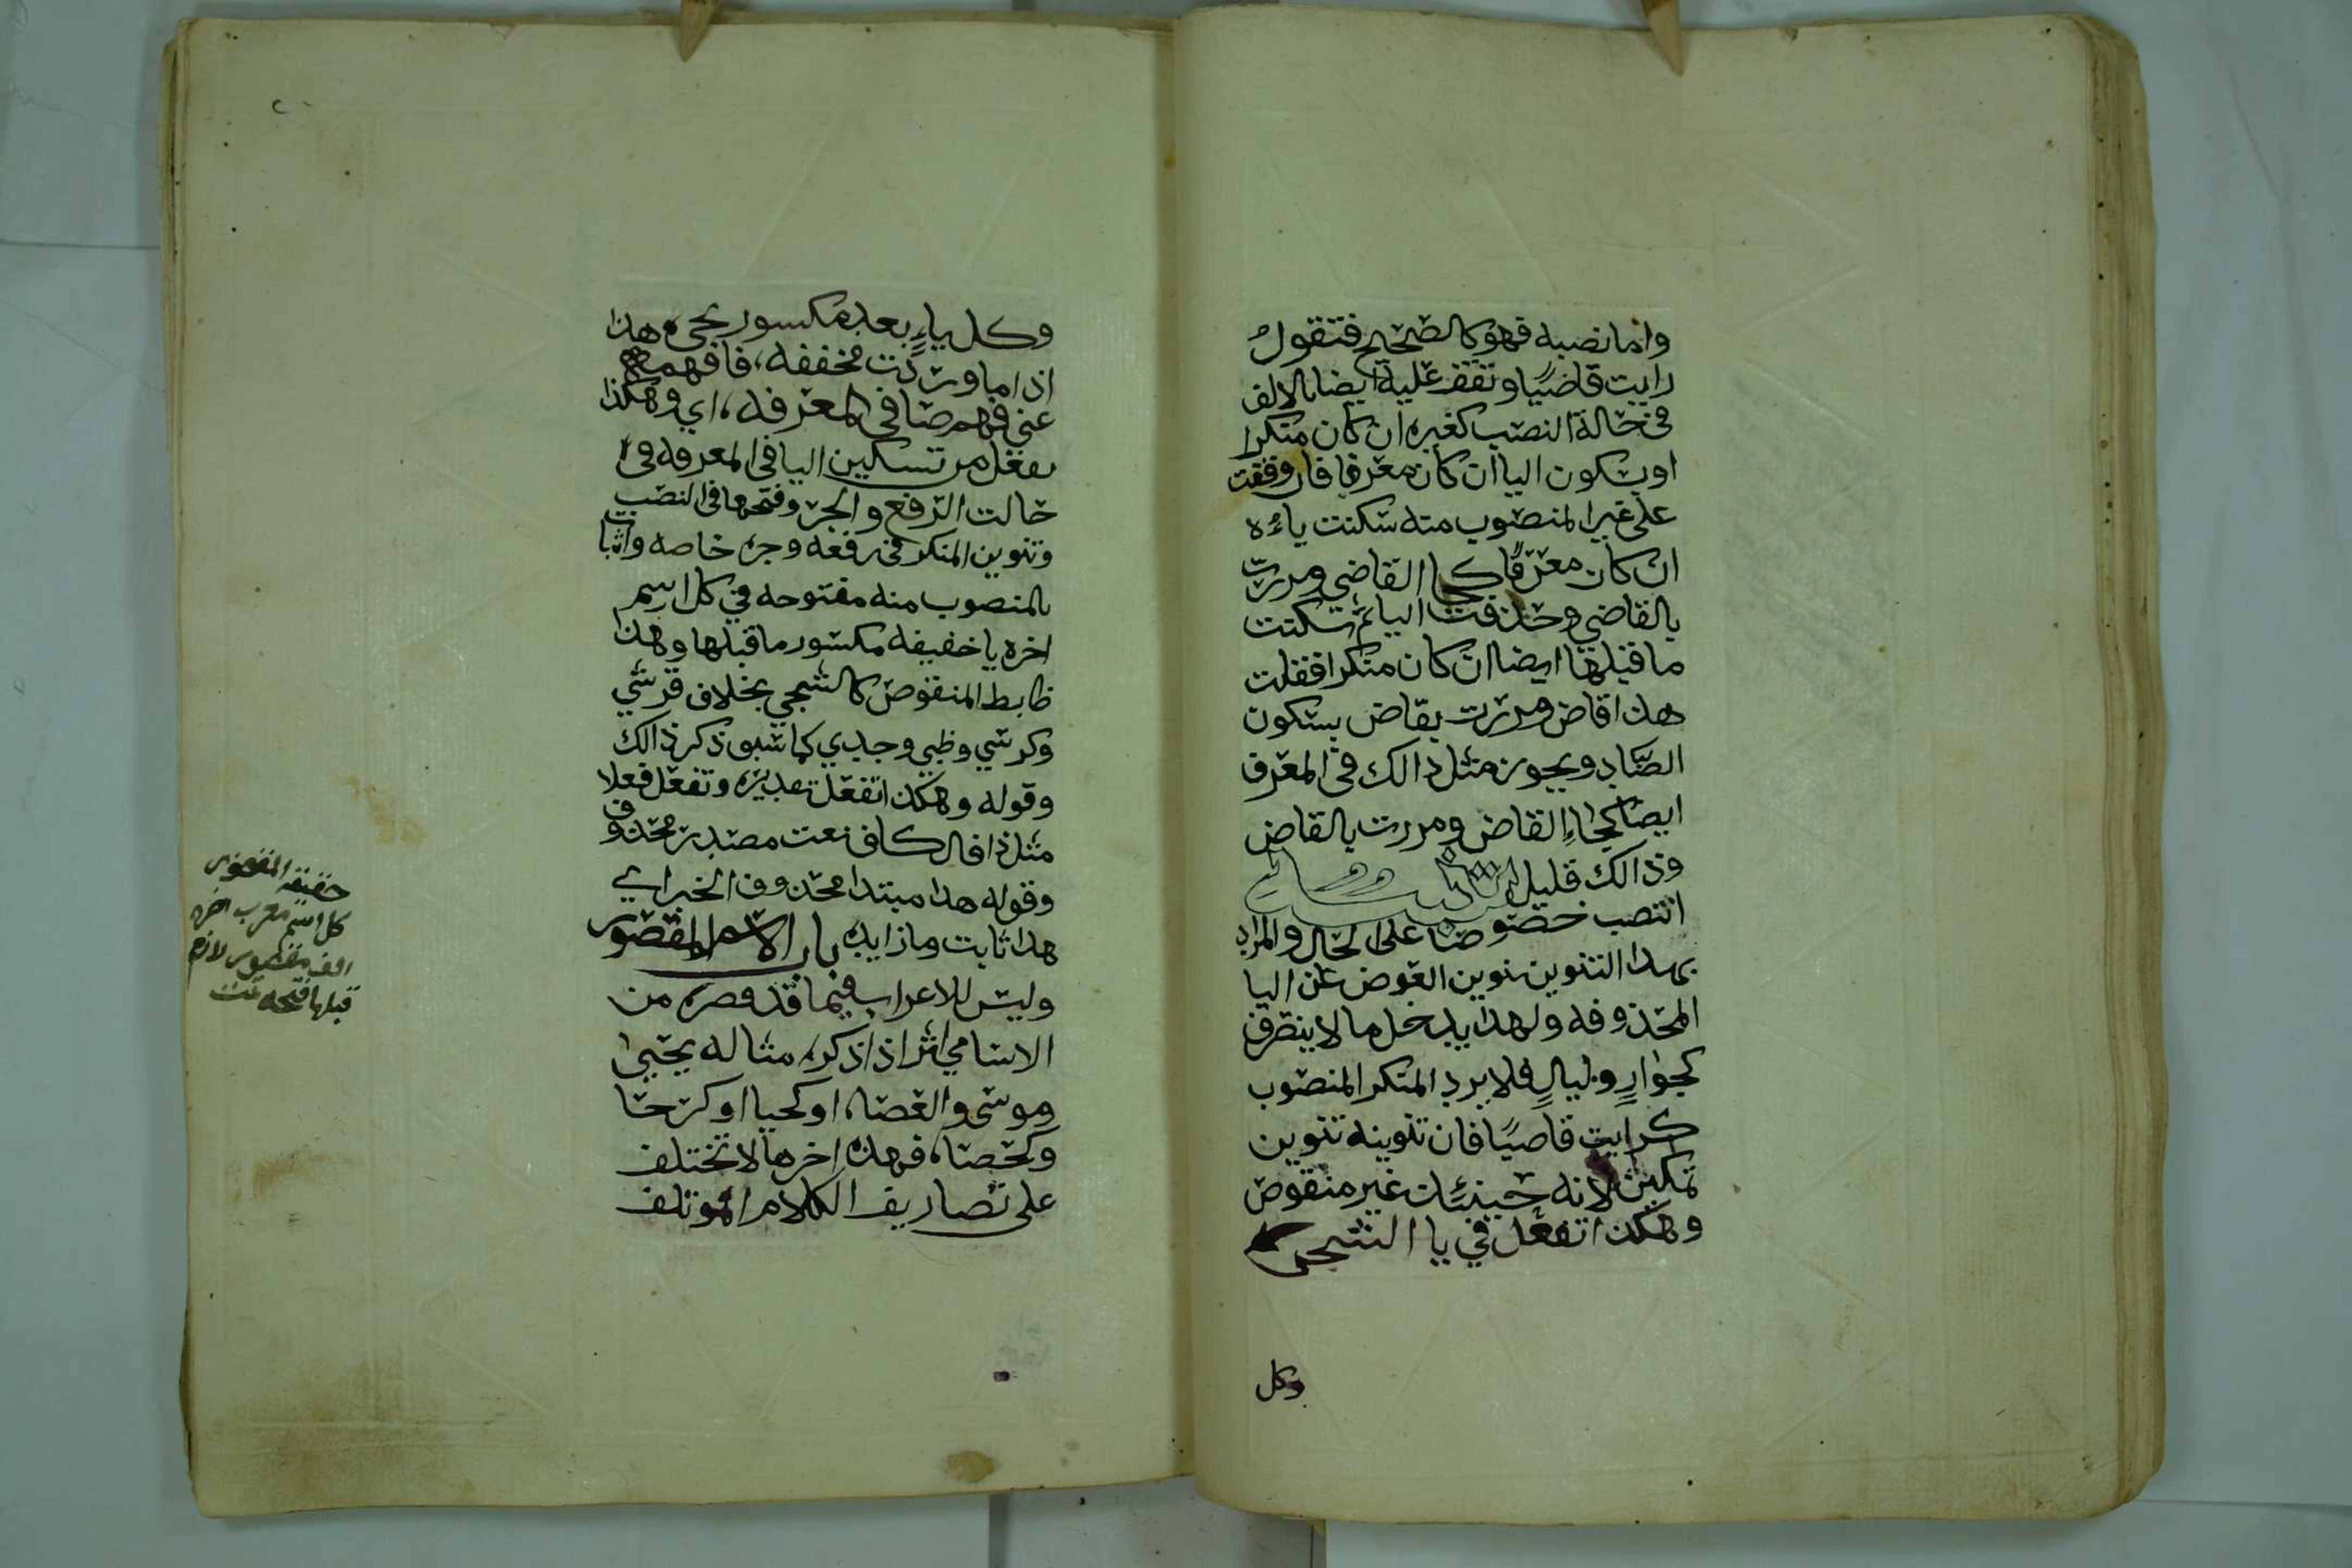 واما نصبه فهو كالصحيح فتقول
رايت قاضيًا وتقف عليه ايضا بالالف
في حالة النصب كغيره ان كان منكرا
او بسكون اليا ان كان معرفا فان وقفت
على غير المنصوب منه سكنت ياءه
ان كان معرفًا كجا القاضي ومررت
بالقاضي وحذفت اليا ثم سكنت
ما قبلها ايضا ان كان منكرا فقلت
هذا قاض ومررت بقاض بسكون
الضاد ويجوز مثل ذالك في المعرف
ايضا كجاء القاض ومررت بالقاض
وذالك قليل
انتصب خصوصا على الحال والمراد
بهذا التنوين تنوين العوض عن اليا
المحذوفه ولهذا يدخل ما لا ينصرف
كجوارٍ وليالٍ فلا يرد المنكر المنصوب
كرايت قاضيًا فان تنوينه تنوين
تمكين لانه حينئذ غير منقوص
وهكذا تفعل في يا الشجي
وكل
وكل ياءٍ بعد مكسور يجي هذا
اذا ما وردت مخففه، فافهمه
عني فهم صافي المعرفه، اي وهكذا
تفعل من تسكين اليا في المعرفه في
حالت الرفع والجر وفتحها في النصب
وتنوين المنكر في رفعه وجره خاصه واثبا
بالمنصوب منه مفتوحه في كل اسم
اخره يا خفيفه مكسور ما قبلها وهذا
ظابط المنقوص كالشجي بخلاف قرشي
وكرسي وظبي وجدي كما سبق ذكر ذالك
وقوله وهكذا تفعل تقديره وتفعل فعلا
مثل ذا فالكاف نعت مصدر محذوف
وقوله هذا مبتدا محذوف الخبر اي
هذا ثابت وما زايده باب الاسم المقصور
وليس للاعراب فيما قد قصر، من
الاسامي اثر اذا ذكر، مثاله يحيى
وموسى والعصا، او كحيا او كرحا
وكحصا، فهذه اخرها لا تختلف
على تصاريف الكلام المؤتلف
حقيقه المقصور
كل اسم معرب اخره
الف مقصور لازم
قبلها فتحه تمت